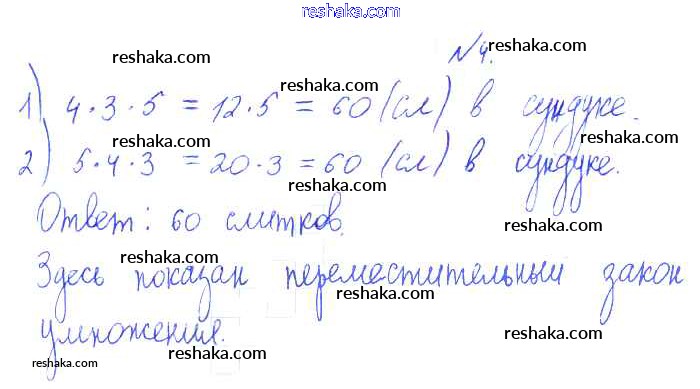 reshaka.com
№4.
reshaka.com reshaka.com
1) 4·3·5 = 12·5 = 60 (сл) в сундуке.
reshaka.com reshaka.com
2) 5·4·3 = 20·3 = 60 (сл) в сундуке.
reshaka.com
Ответ: 60 слитков.
reshaka.com reshaka.com
Здесь показан переместительный закон
reshaka.com reshaka.com
умножения.
reshaka.com reshaka.com reshaka.com